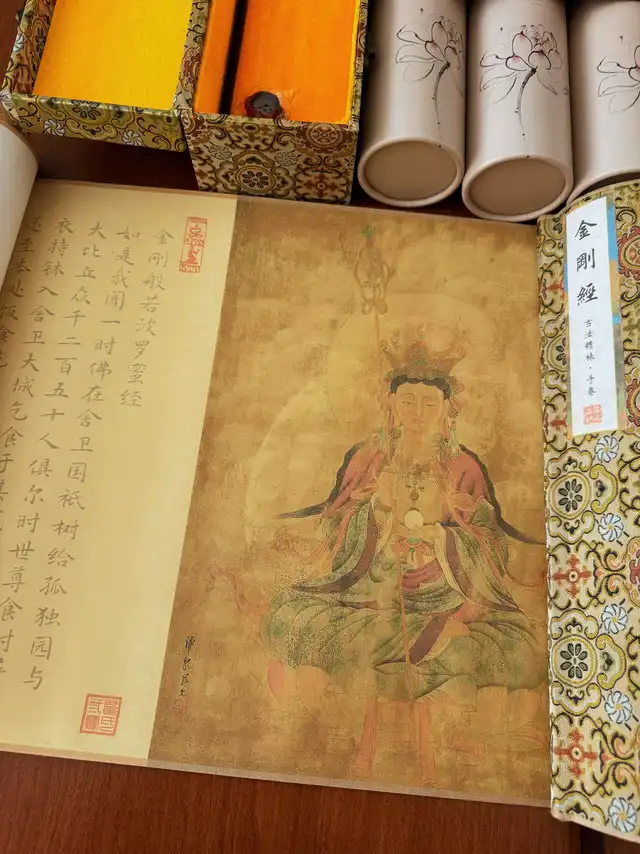 金剛經
古法精裱·手卷
金剛般若波罗蜜经
如是我闻一时佛在舍卫国祇树给孤独园与
大比丘众千二百五十人俱尔时世尊食时
衣持钵入舍卫大城乞食于其
还至本处饭食